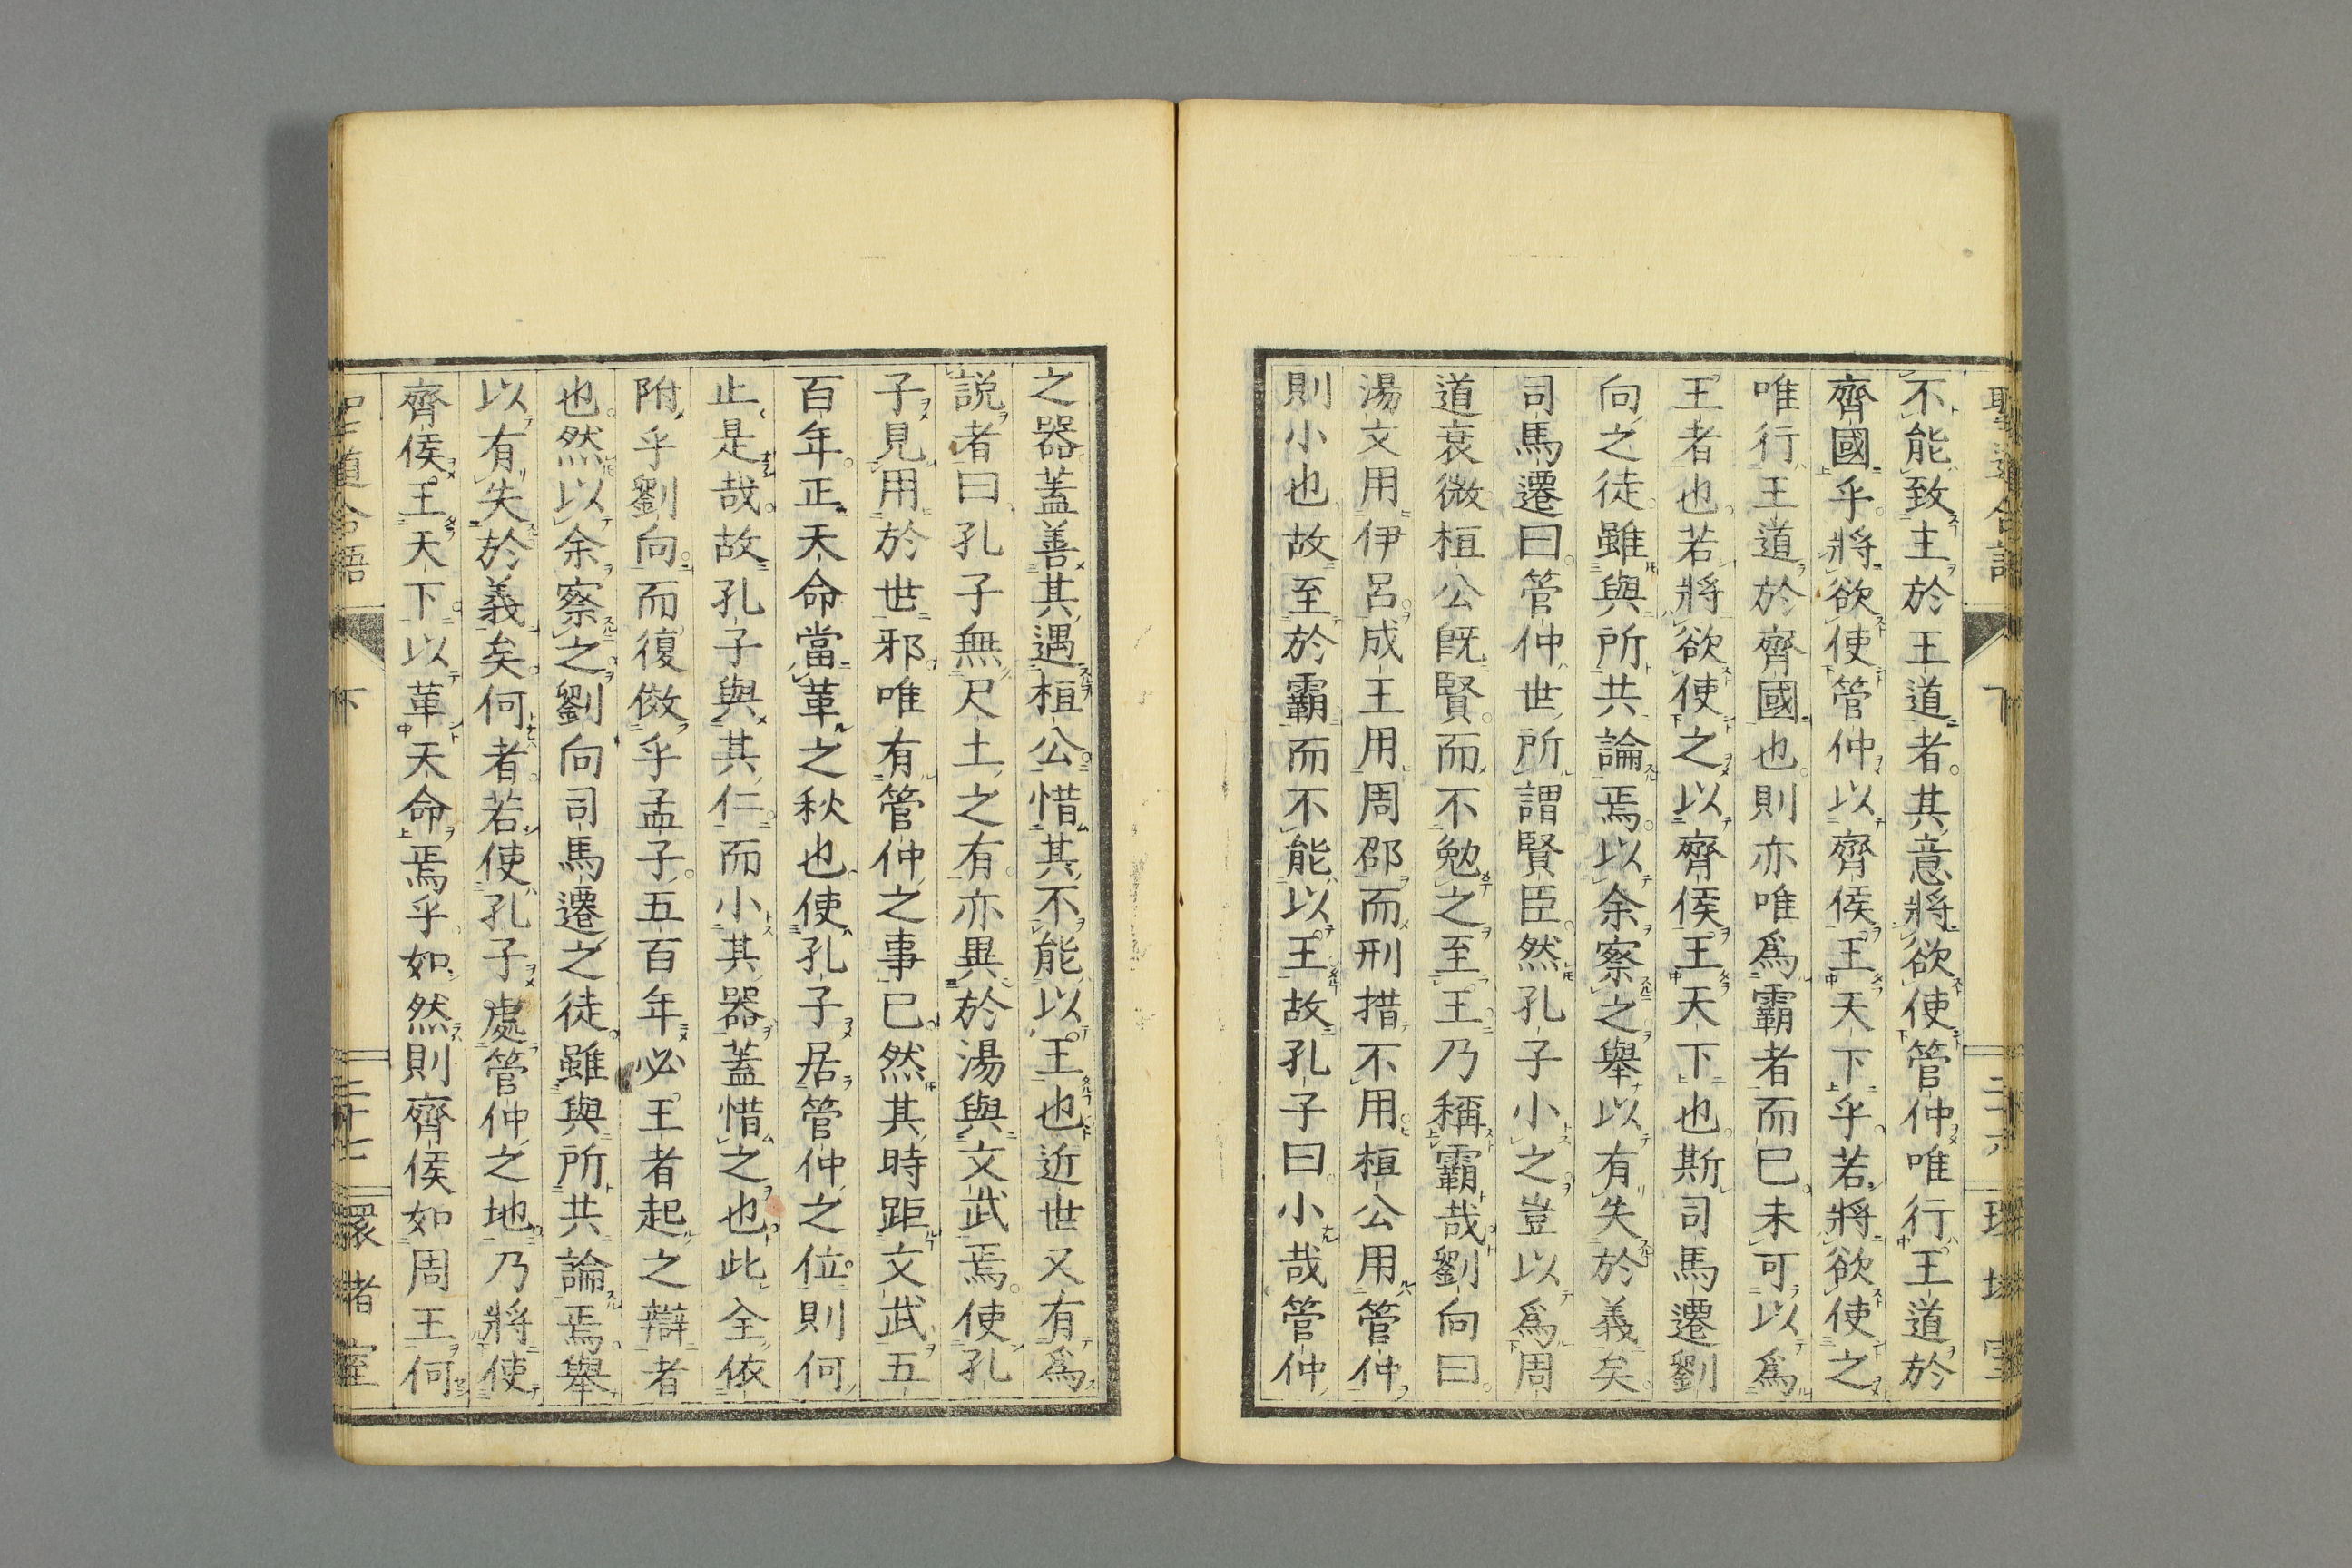 不能致主於王道者其意將欲使管仲唯行王道於
齊國乎將欲使管仲以齊侯王天下乎若將欲使之
唯行王道於齊國也則亦唯爲霸者而已未可以爲
王者也若將欲使之以齊侯王天下也斯司馬遷劉
向之徒雖與所共論焉以余察之舉以有失於義矣
司馬遷曰管仲世所謂賢臣然孔子小之豈以爲周
道衰微桓公既賢而不勉之至王乃稱霸哉劉向曰
湯文用伊呂成王用周邵而刑措不用桓公用管仲
則小也故至於霸而不能以王故孔子曰小哉管仲
之器蓋善其遇桓公惜其不能以王也近世又有爲
説者曰孔子無尺土之有亦異於湯與文武焉使孔
子見用於世邪唯有管仲之事已然其時距文武五
百年正天命當革之秋也使孔子居管仲之位則何
止是哉故孔子與其仁而小其器蓋惜之也此全依
附乎劉向而復傚乎孟子五百年必王者起之辯者
也然以余察之劉向司馬遷之徒雖與所共論焉舉
以有失於義矣何者若使孔子處管仲之地乃將使
齊侯王天下以革天命焉乎如然則齊侯如周王何
聖道合語 下 二十七 環堵室